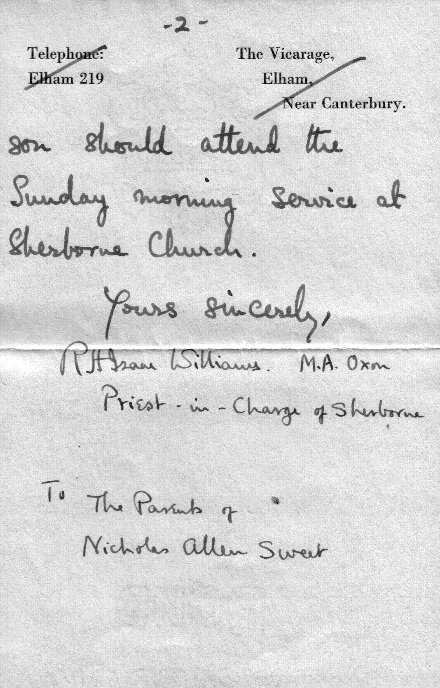 -2-
Telephone: The Vicarage,
Elham 219 Elham,
Near Canterbury.
son should attend the
Sunday morning service at
Sherborne Church.
Yours sincerely,
R H Isaac Williams. M.A. Oxon
Priest-in-Charge of Sherborne
To The Parents of
Nicholas Allen Sweet